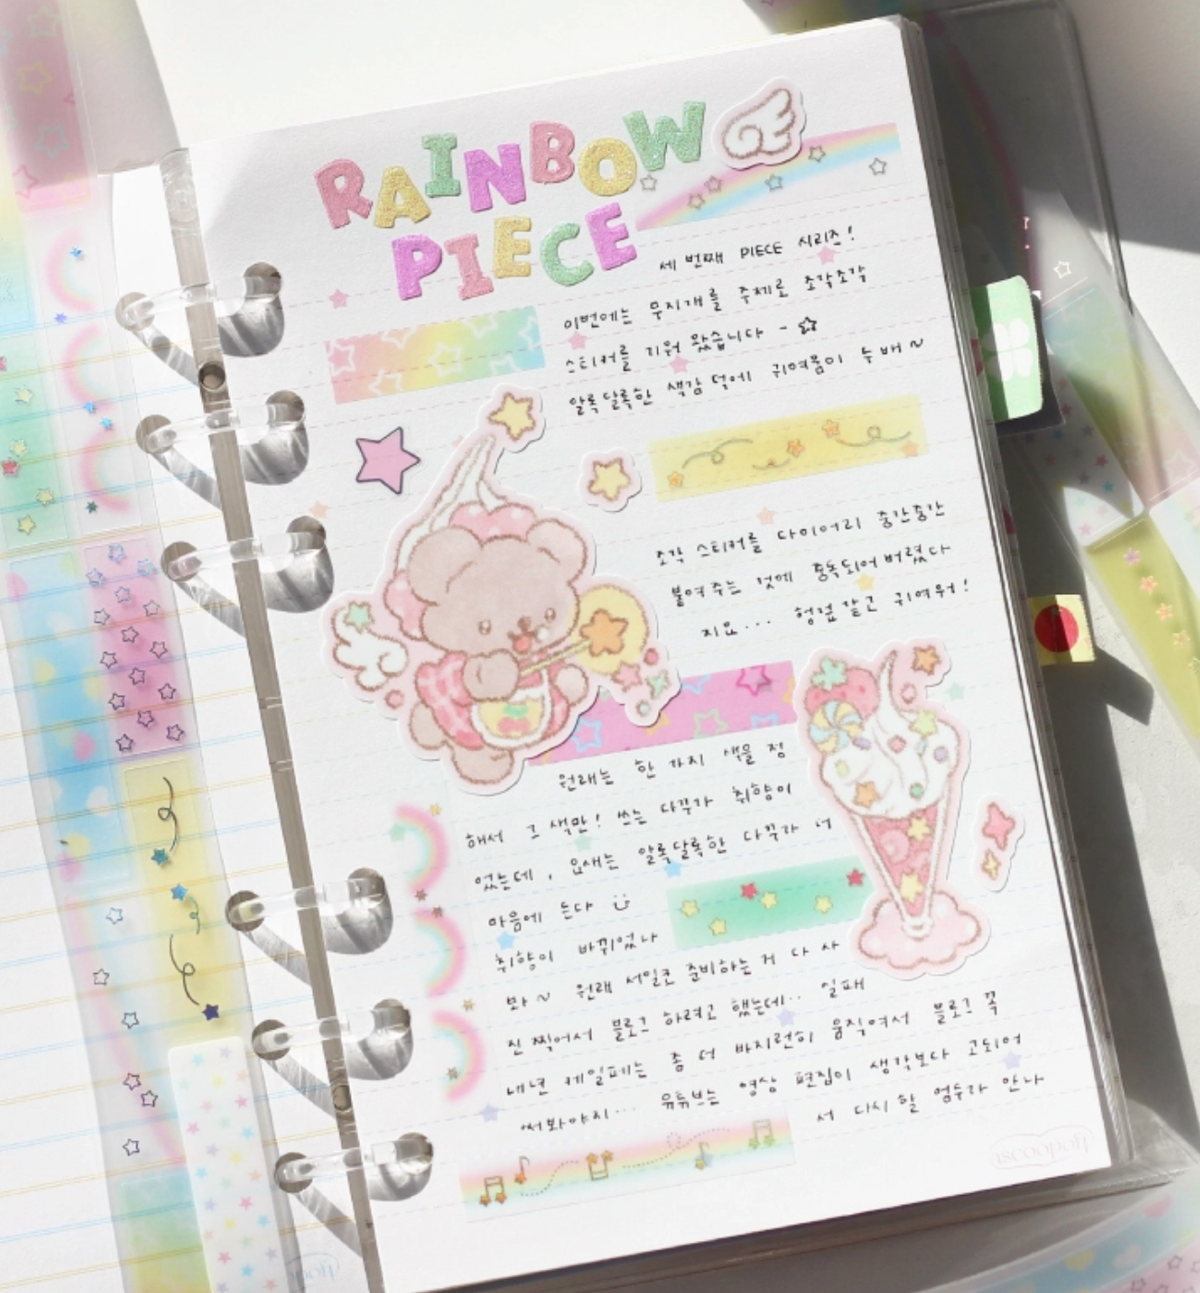 RAINBOW
PIECE
세 번째 PIECE 시리즈!
이번에는 무지개를 주제로 조각조각
스티커를 기워 왔습니다 ~ ☆
알록달록한 색감 덕에 귀여움이 두 배 ~
조각 스티커를 다이어리 중간중간
붙여주는 것에 중독되어버렸다
지요... 헝겊 같고 귀여워!
원래는 한 가지 색을 정
해서 그 색만! 쓰는 다꾸가 취향이
었는데, 요새는 알록달록한 다꾸가 더
마음에 든다 ¨̮
취향이 바뀌었나
봐 ~ 원래 서일페 준비하는 거 다 사
진 찍어서 블로그 하려고 했는데.. 실패
내년 케일페는 좀 더 바지런히 움직여서 블로그 꼭
써봐야지... 유튜브는 영상 편집이 생각보다 고되어
서 다시 할 엄두가 안나